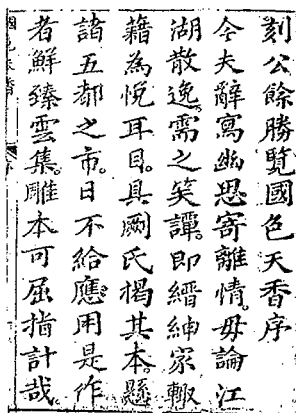 刻公餘勝覽國色天香序
今夫辭寫幽思寄離情毋論江
湖散逸需之笑譚即縉紳家輙
藉為悅耳目具剞氏揭其本懸
諸五都之市日不給應用是作
者鮮臻雲集雕本可屈指計哉